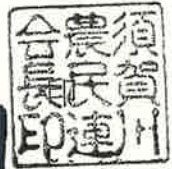 須賀川
農民連
会長印